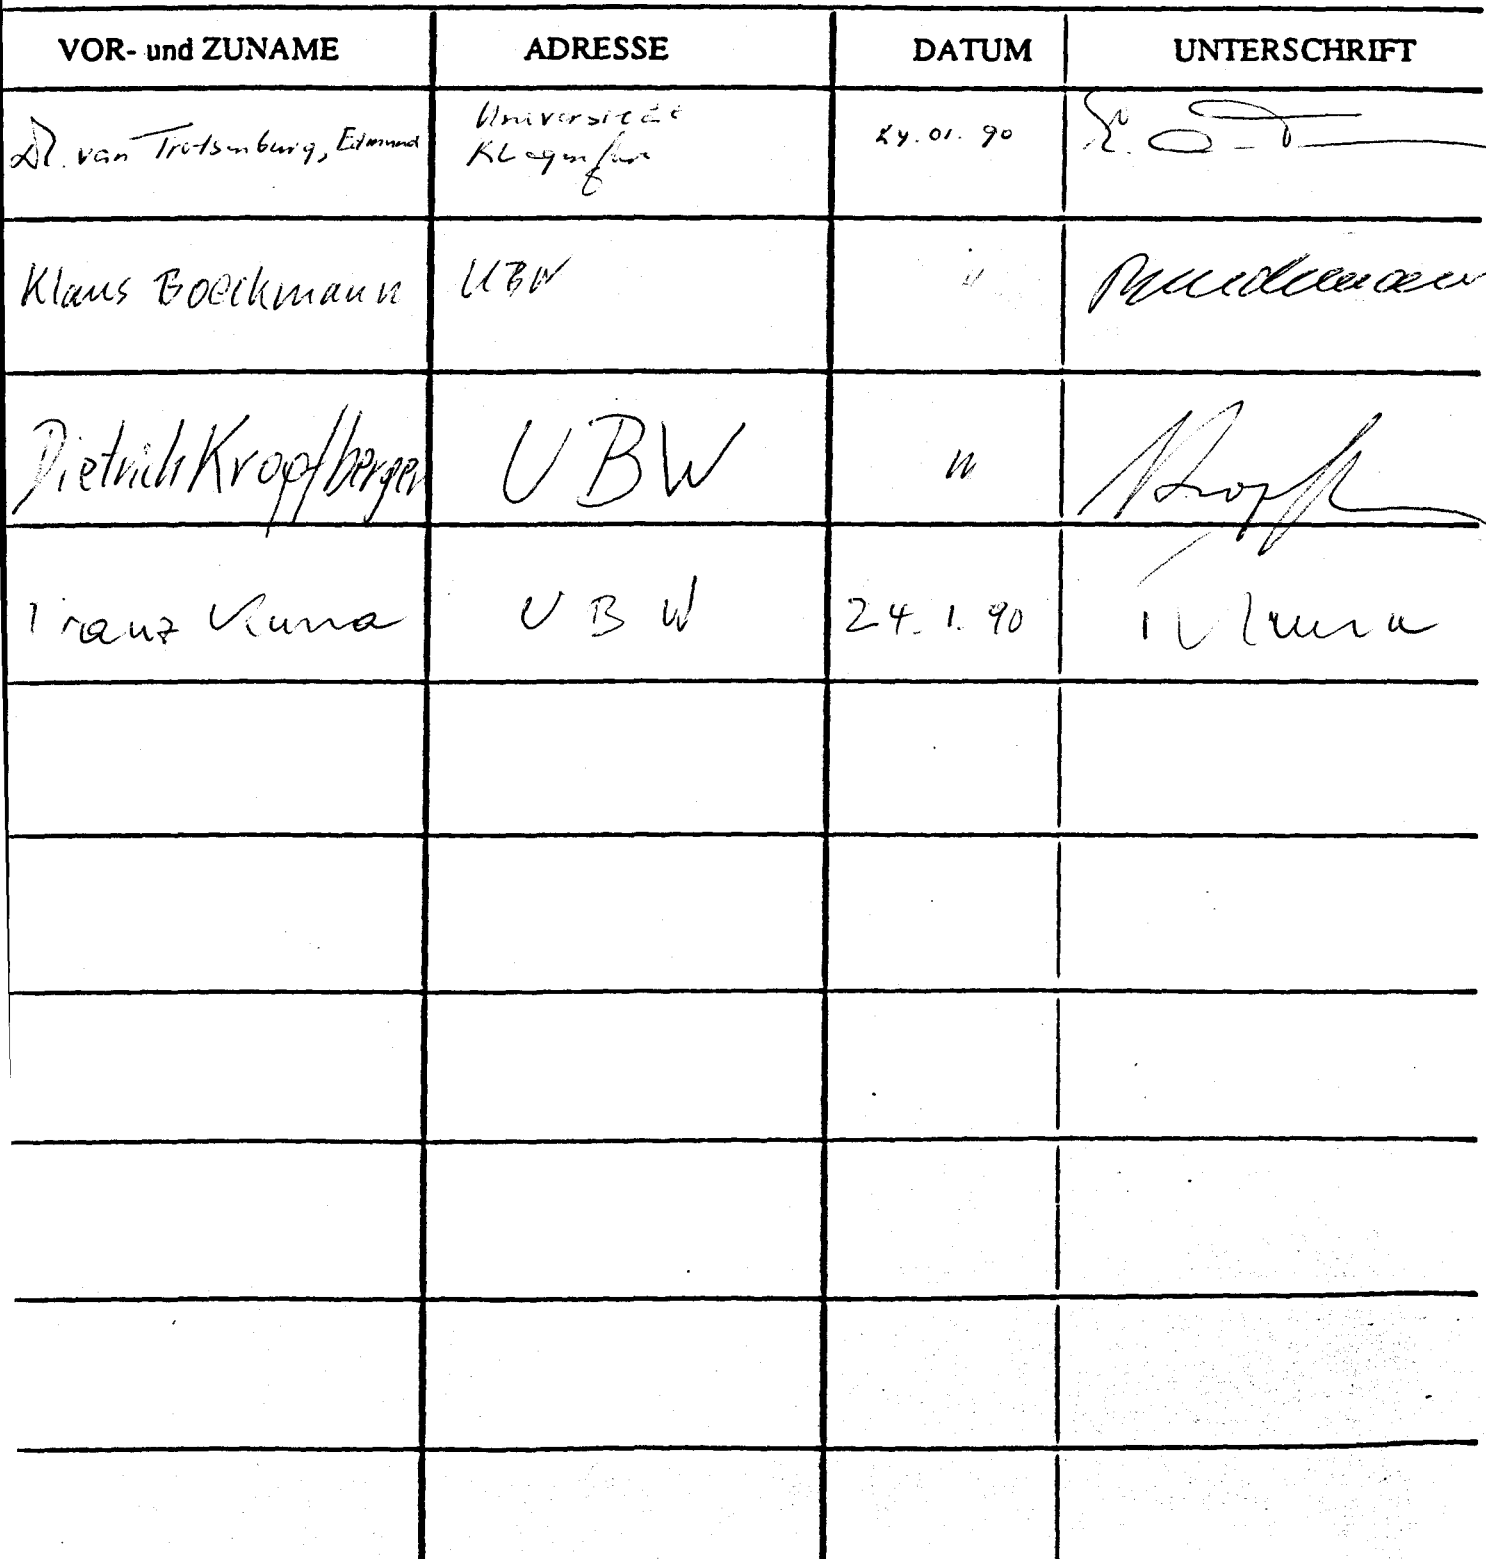 VOR- und ZUNAME ADRESSE DATUM UNTERSCHRIFT
Dr. van Trotsenburg, Edmund Universität 24.01.90
Klagenfurt
Klaus Boeckmann UBW "
Dietrich Kropfberger UBW " Kropf
Franz Kuna UBW 24.1.90 F Kuna